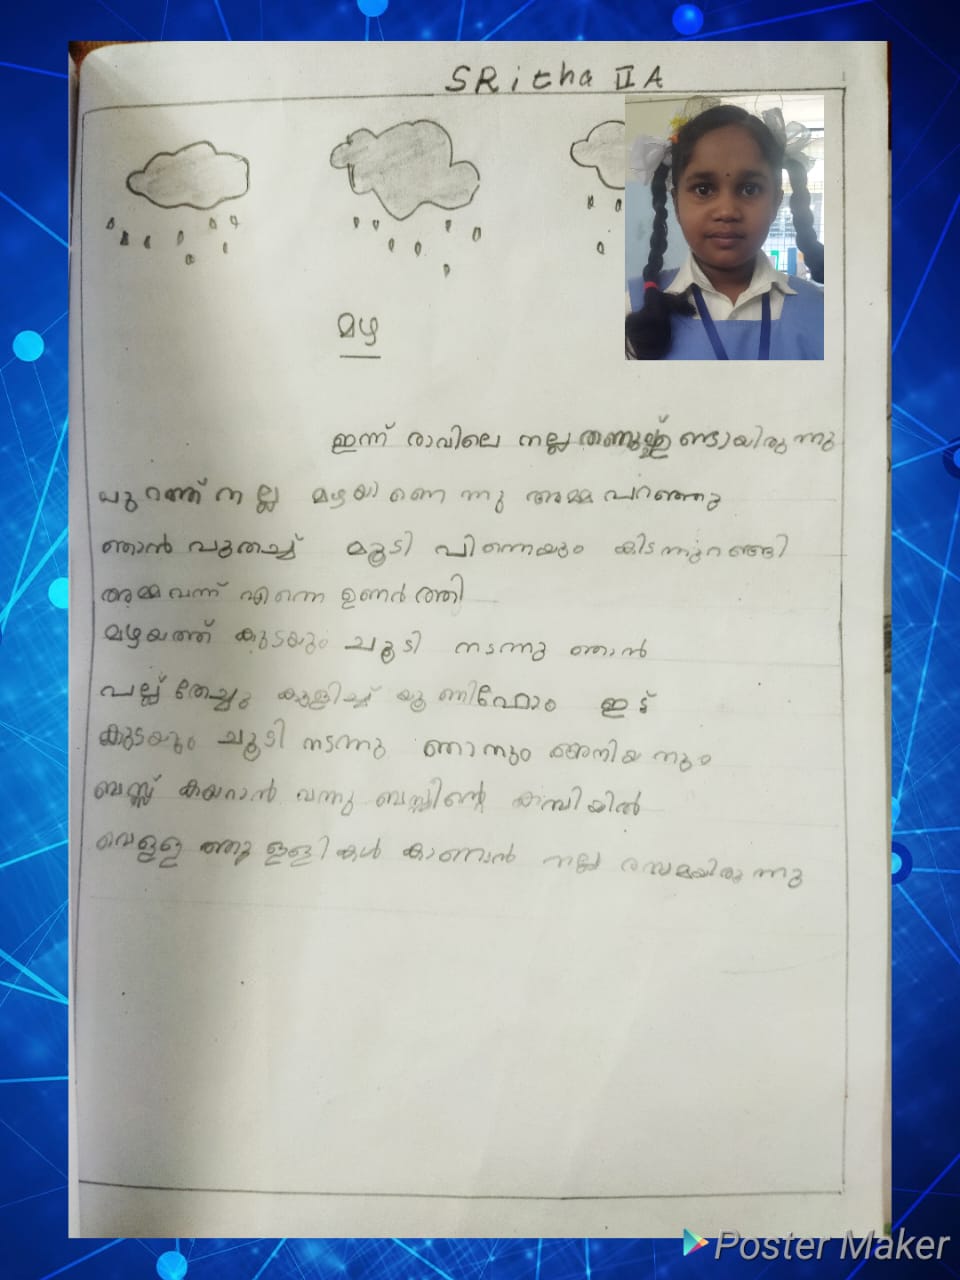 SRitha II A
മഴ
ഇന്ന് രാവിലെ നല്ല ണ്ടായിരുന്നു
പുറത്ത് നല്ല മഴയാണെന്നു അമ്മ പറഞ്ഞു
ഞാൻ പുതച്ച് മൂടി പിന്നെയും കിടന്നുറങ്ങി
അമ്മ വന്ന് എന്നെ ഉണർത്തി
മഴയത്ത് കുടയും ചൂടി നടന്നു ഞാൻ
പല്ല് തേച്ചു കുളിച്ച് യൂണിഫോം ഇട്
കുടയും ചൂടി നടന്നു ഞാനും അനിയനും
ബസ്സ് കയറാൻ വന്നു ബസ്സിന്റെ കമ്പിയിൽ
വെള്ള ത്തുള്ളികൾ കാണാൻ നല്ല രസമയിരുന്നു
Poster Maker